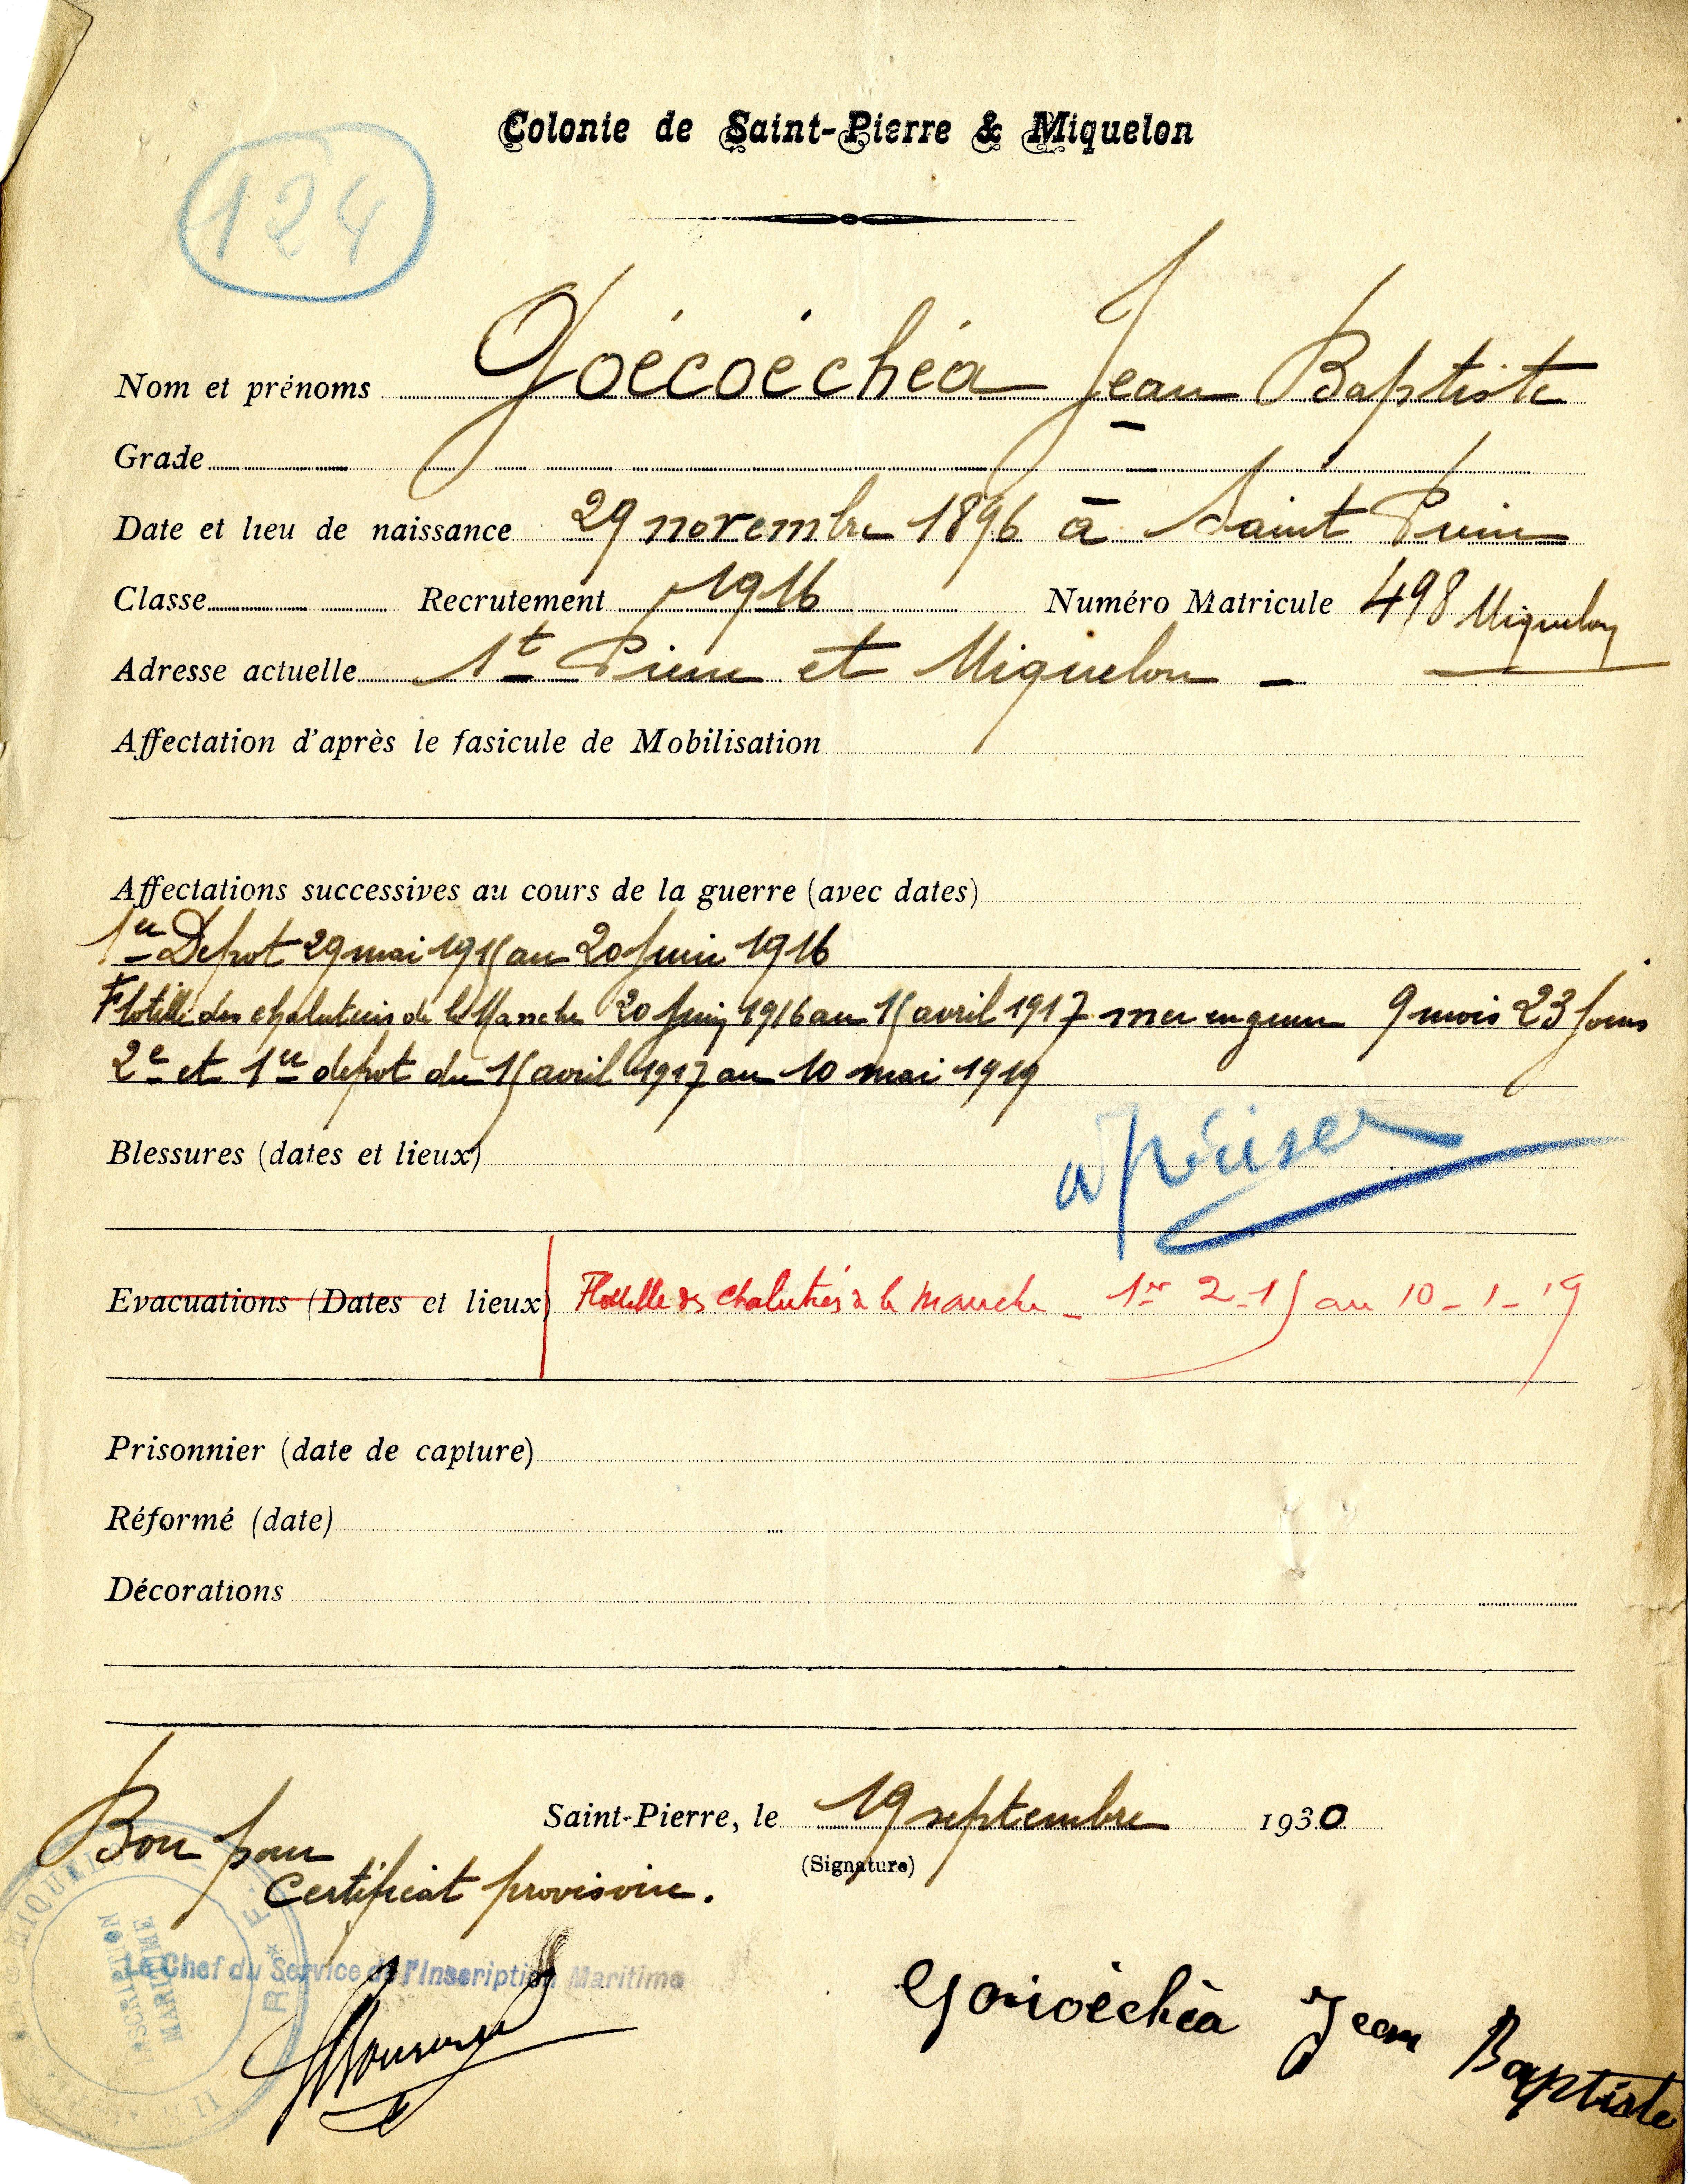 Colonie de Saint-Pierre & Miquelon
124
Nom et prénoms Goécoéchéa Jean Baptiste
Grade
Date et lieu de naissance 29 novembre 1896 à Saint Pierre
Classe Recrutement 1916 Numéro Matricule 498 Miquelon
Adresse actuelle St Pierre et Miquelon -
Affectation d'après le fasicule de Mobilisation
Affectations successives au cours de la guerre (avec dates)
1er Depot 29 mai 1915 au 20 juin 1916
Flotille des chalutiers de la Manche 20 juin 1916 au 15 avril 1917 mer en guerre 9 mois 23 jours
2e et 1er depot du 15 avril 1917 au 10 mai 1919
Blessures (dates et lieux)
à préciser
Evacuations (Dates et lieux) Flottille des chalutiers de la Manche - 1er 2-15 au 10-1-19
Prisonnier (date de capture)
Réformé (date)
Décorations
Saint-Pierre, le 19 septembre 1930
(Signature)
Bon pour
Certificat provisoire.
Le Chef du Service de l'Inscription Maritime
INSCRIPTION
MARITIME
Goicoéchéa Jean Baptiste